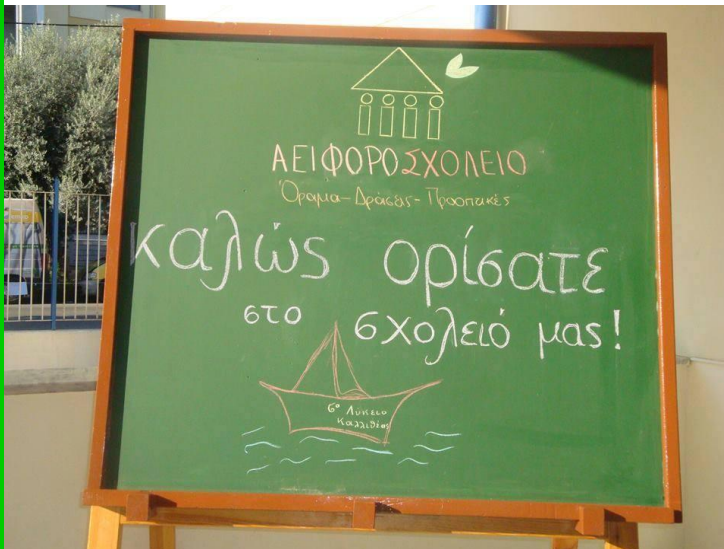 ΑΕΙΦΟΡΟ ΣΧΟΛΕΙΟ
Όραμα - Δράσεις - Προοπτικές
καλώς ορίσατε
στο σχολειό μας!
6ο Λύκειο
Καλλιθέας